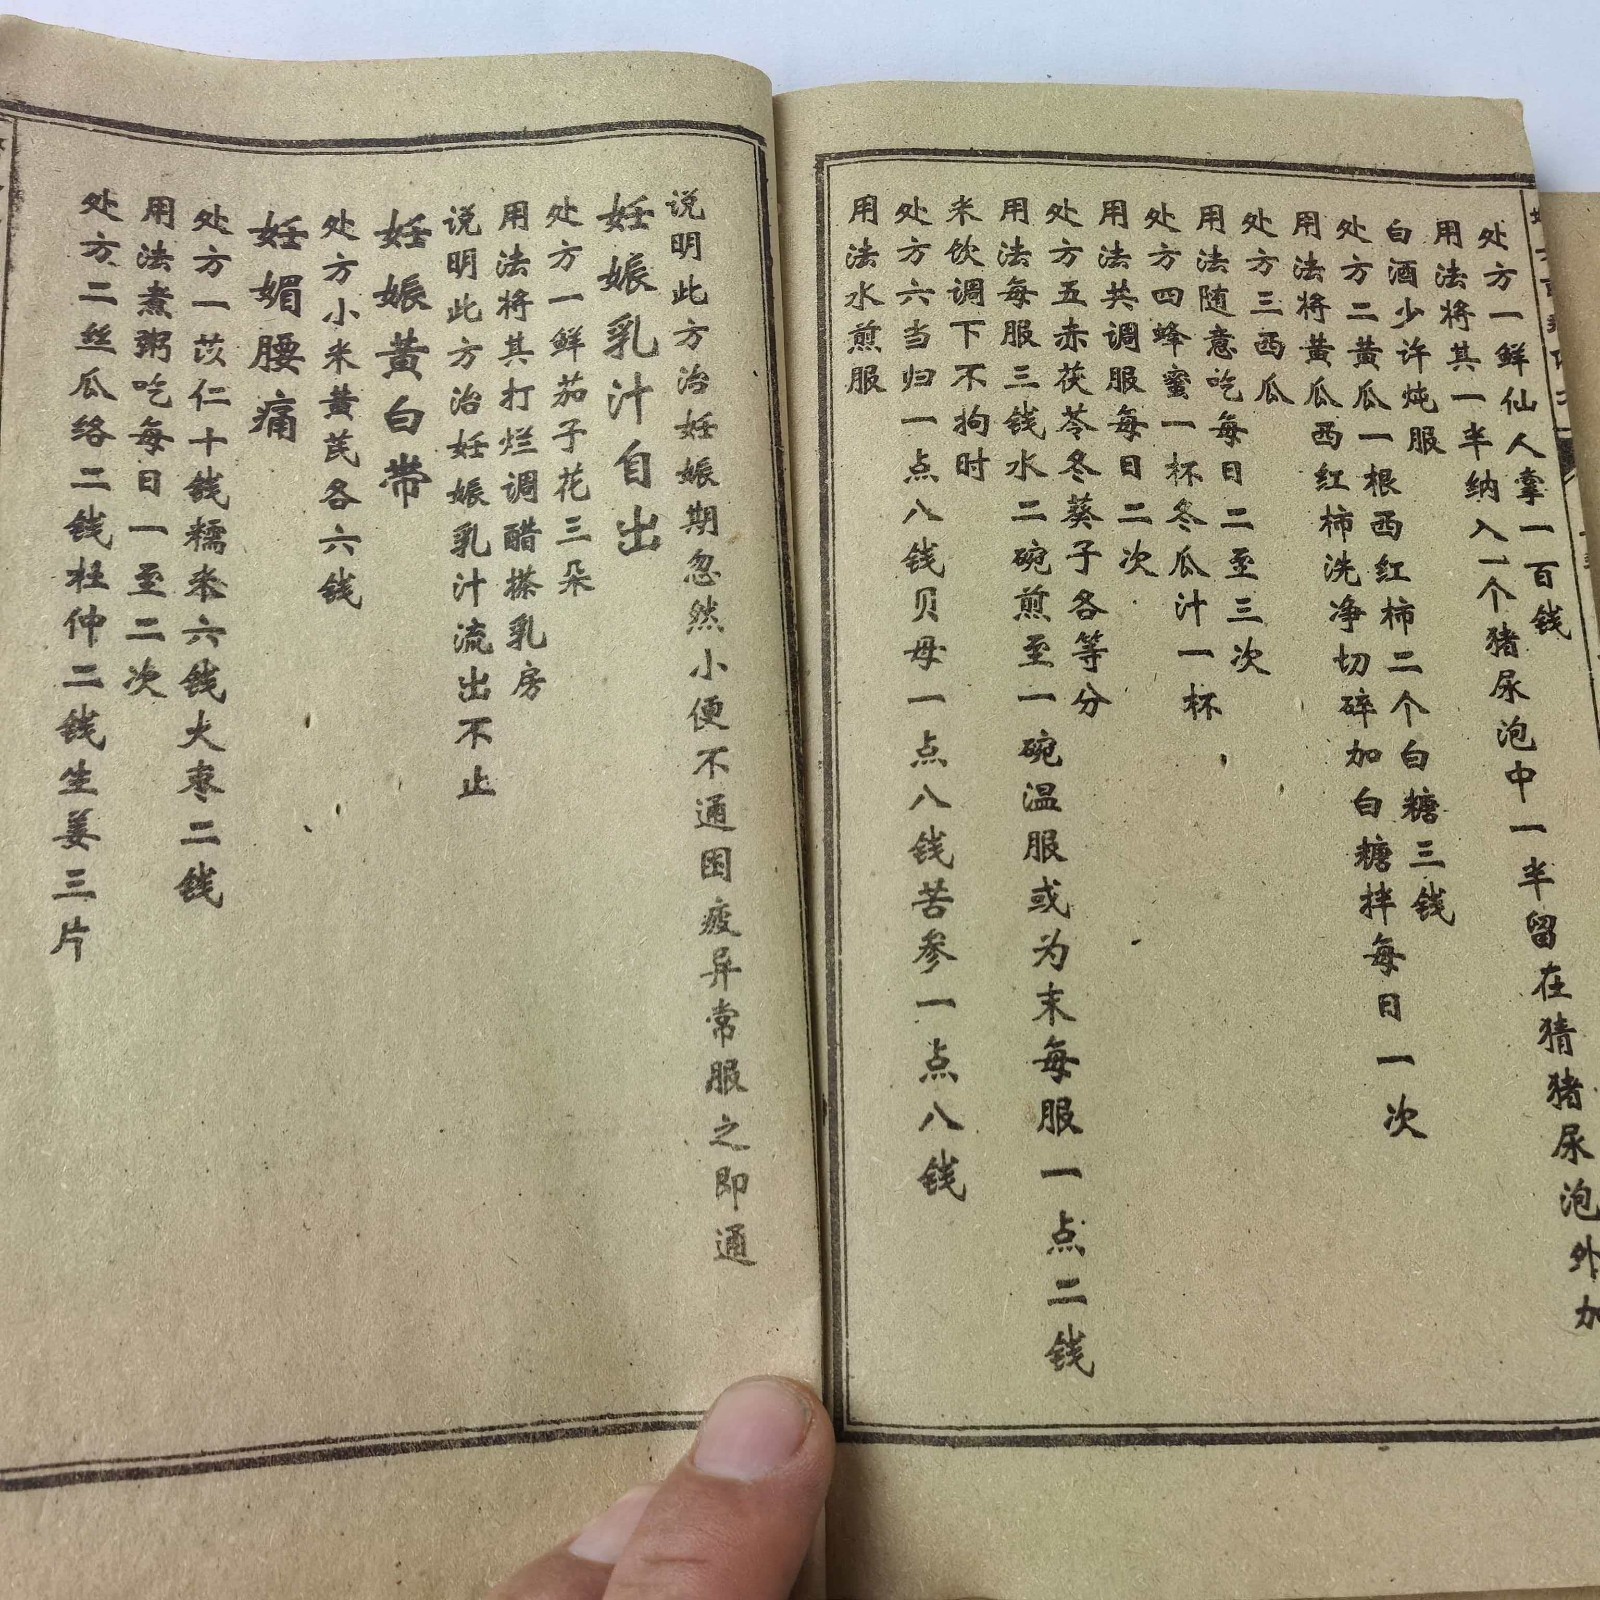 处方一鲜仙人掌一百钱
用法将其一半纳入一个猪尿泡中一半留在猜猪尿泡外加
白酒少许炖服
处方二黄瓜一根西红柿二个白糖三钱
用法将黄瓜西红柿洗净切碎加白糖拌每日一次
处方三西瓜
用法随意吃每日二至三次
处方四蜂蜜一杯冬瓜汁一杯
用法共调服每日二次
处方五赤茯苓冬葵子各等分
用法每服三钱水二碗煎至一碗温服或为末每服一点二钱
米饮调下不拘时
处方六当归一点八钱贝母一点八钱苦参一点八钱
用法水煎服
说明此方治妊娠期忽然小便不通困疲异常服之即通
妊娠乳汁自出
处方一鲜茄子花三朵
用法将其打烂调醋搽乳房
说明此方治妊娠乳汁流出不止
妊娠黄白带
处方小米黄芪各六钱
妊媚腰痛
处方一苡仁十钱糯米六钱大枣二钱
用法煮粥吃每日一至二次
处方二丝瓜络二钱杜仲二钱生姜三片